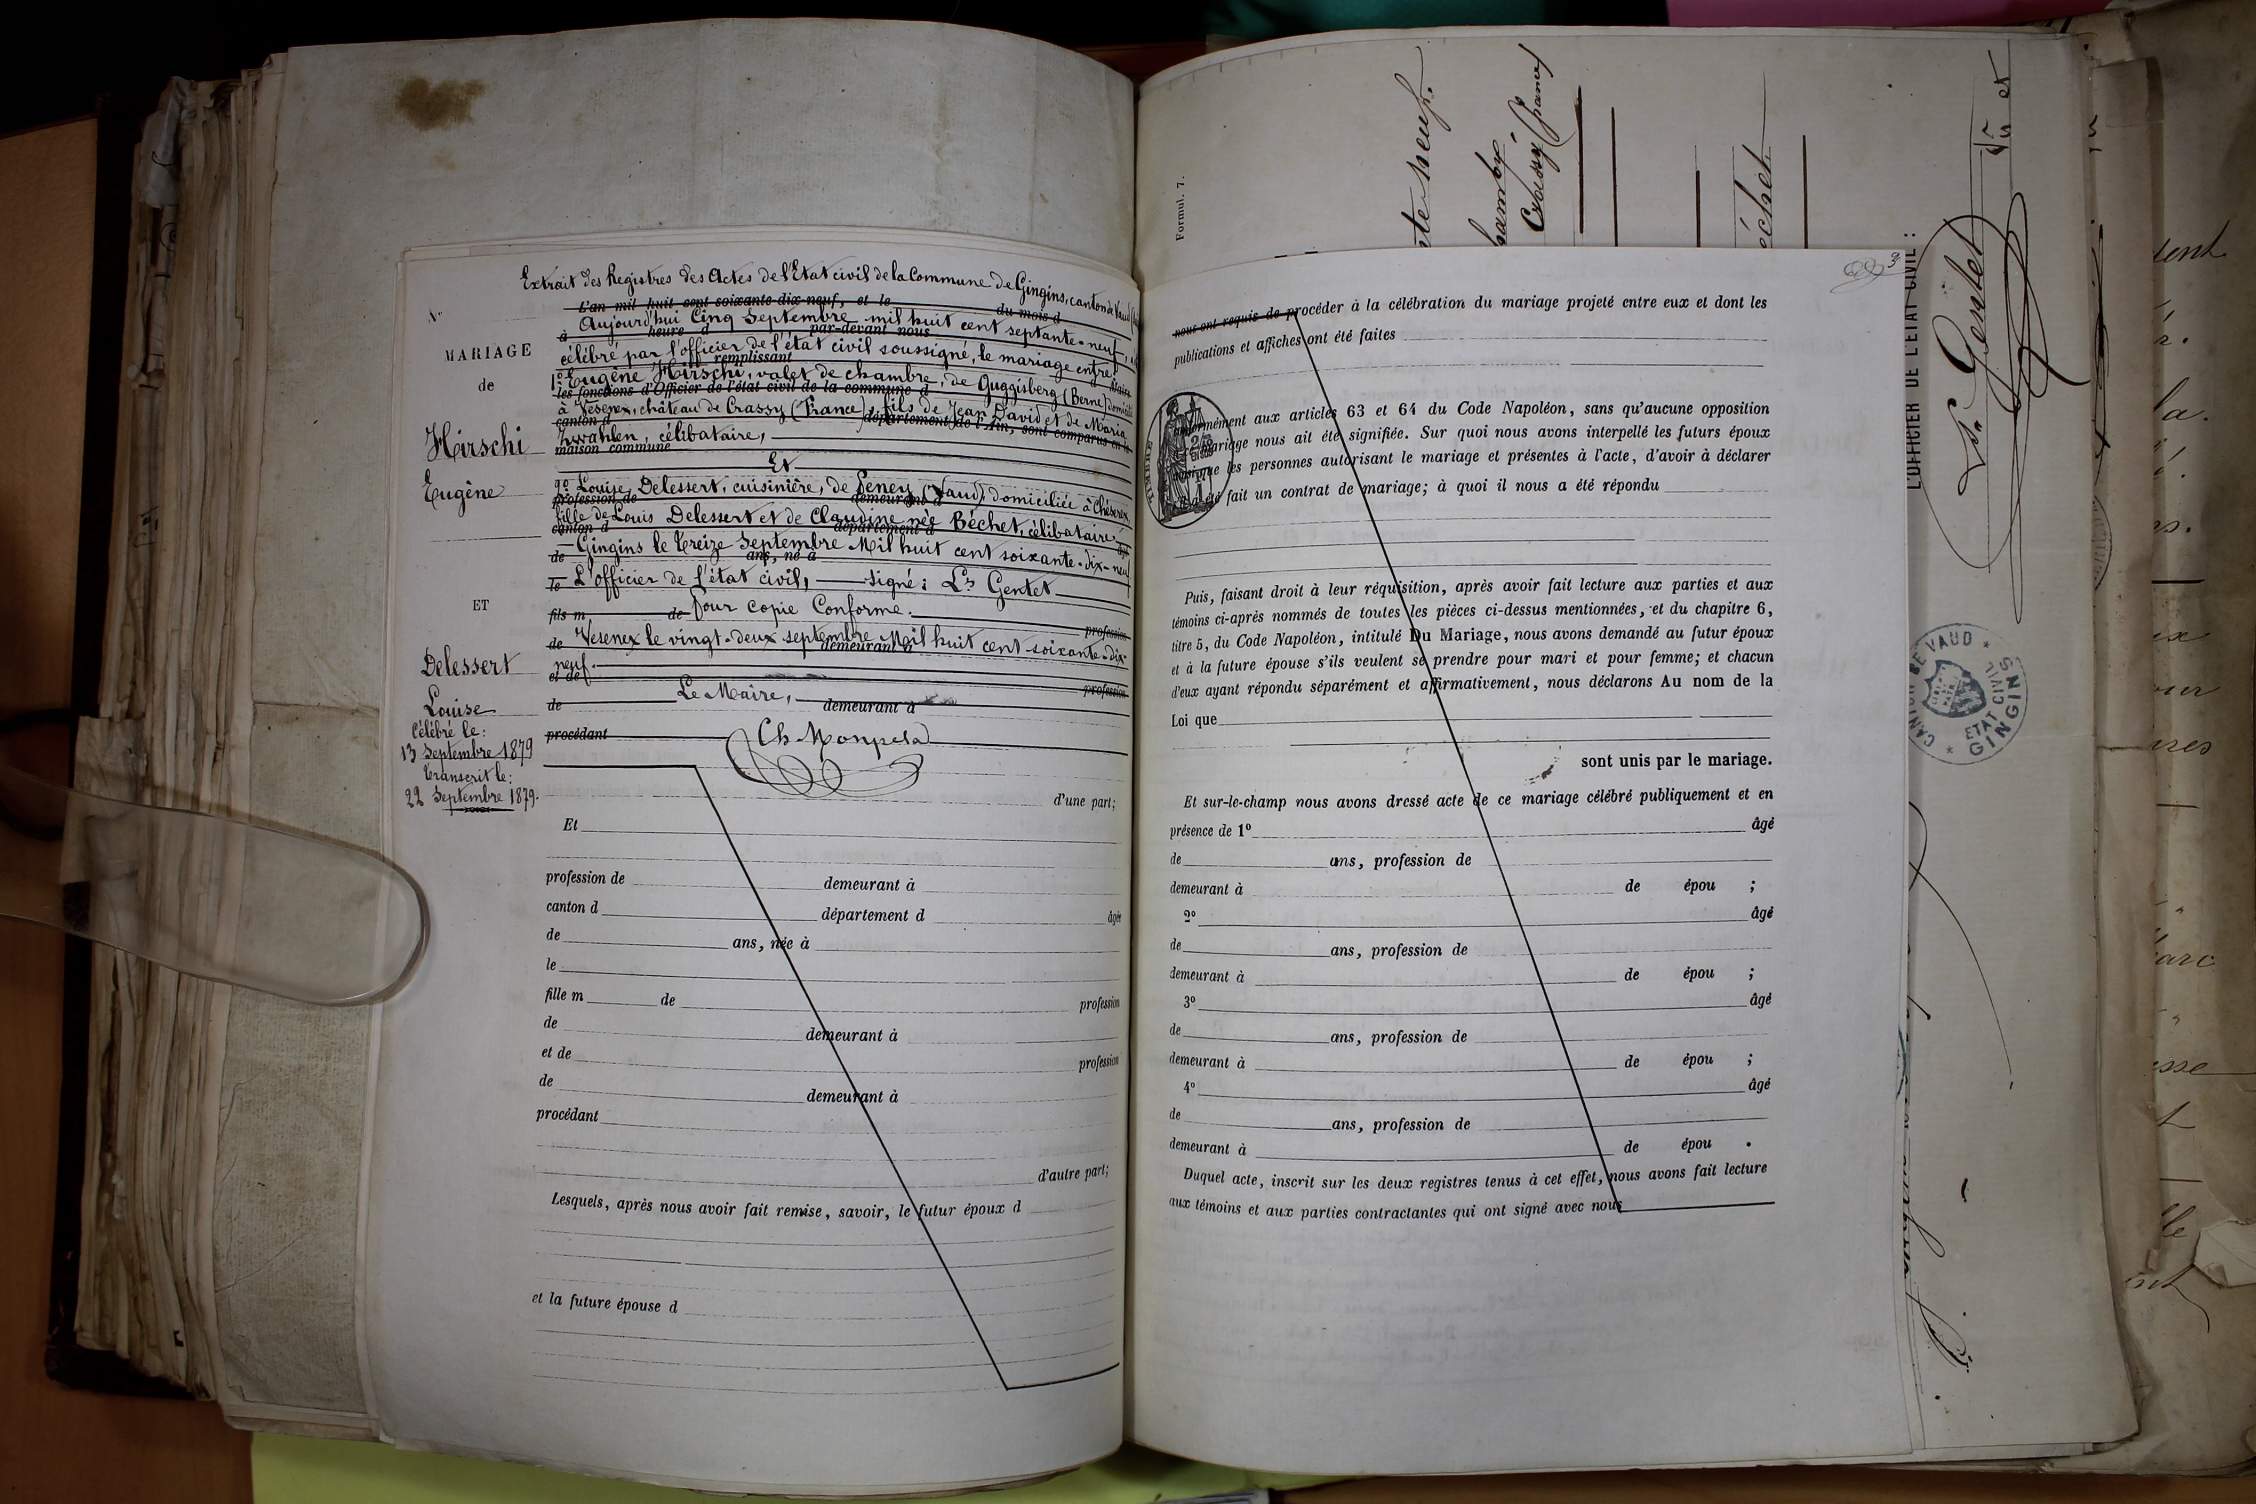 Extrait des Registres des Actes de l'Etat civil de la Commune de Gingins, canton de Vaud
L'an mil huit cent soixante-dix-neuf, et le du mois d
N°
Aujourd'hui Cinq Septembre mil huit cent septante-neuf,
à heure d par-devant nous
célébré par l'officier de l'état civil soussigné, le mariage entre:
remplissant
MARIAGE
de
1° Eugène Hirschi, valet de chambre, de Guggisberg (Berne) domicilié
les fonctions d'Officier de l'état civil de la commune d
à Vesenex, château de Crassy (France), fils de Jean David et de Maria
canton d département de l'Ain, sont comparus en la
Zwahlen, célibataire,
maison commune
Hirschi
Eugène
Et
2° Louise Delessert, cuisinière, de Peney (Vaud), domiciliée à Chéserex,
profession de demeurant à
fille de Louis Delessert et de Claudine née Béchet, célibataire
canton d département d
Gingins le treize Septembre Mil huit cent soixante-dix-neuf
de ans, né à
le L'officier de l'état civil, signé: Ls Gentet
ET
fils m de Pour Copie Conforme.
profession
de Vesenex le vingt-deux septembre Mil huit cent soixante-dix-
demeurant à
neuf.
et de profession
Delessert
Louise
Le Maire,
de demeurant à
procédant
Célébré le:
13 Septembre 1879
Transcrit le:
22 Septembre 1879.
d'une part;
Et
profession de demeurant à
canton d département d âgée
de ans, née à
le
fille m de profession
de demeurant à
et de profession
de demeurant à
procédant
d'autre part;
Lesquels, après nous avoir fait remise, savoir, le futur époux d
et la future épouse d
Formul. 7.
Béchet
L'OFFICIER DE L'ÉTAT CIVIL:
Ls Gentet
CANTON DE VAUD
ETAT CIVIL
GINGINS
nous ont requis de procéder à la célébration du mariage projeté entre eux et dont les
publications et affiches ont été faites
conformément aux articles 63 et 64 du Code Napoléon, sans qu'aucune opposition
mariage nous ait été signifiée. Sur quoi nous avons interpellé les futurs époux
les personnes autorisant le mariage et présentes à l'acte, d'avoir à déclarer
fait un contrat de mariage; à quoi il nous a été répondu
Puis, faisant droit à leur réquisition, après avoir fait lecture aux parties et aux
témoins ci-après nommés de toutes les pièces ci-dessus mentionnées, et du chapitre 6,
titre 5, du Code Napoléon, intitulé Du Mariage, nous avons demandé au futur époux
et à la future épouse s'ils veulent se prendre pour mari et pour femme; et chacun
d'eux ayant répondu séparément et affirmativement, nous déclarons Au nom de la
Loi que
sont unis par le mariage.
Et sur-le-champ nous avons dressé acte de ce mariage célébré publiquement et en
présence de 1° âgé
de ans, profession de
demeurant à de épou ;
2° âgé
de ans, profession de
demeurant à de épou ;
3° âgé
de ans, profession de
demeurant à de épou ;
4° âgé
de ans, profession de
demeurant à de épou .
Duquel acte, inscrit sur les deux registres tenus à cet effet, nous avons fait lecture
aux témoins et aux parties contractantes qui ont signé avec nous